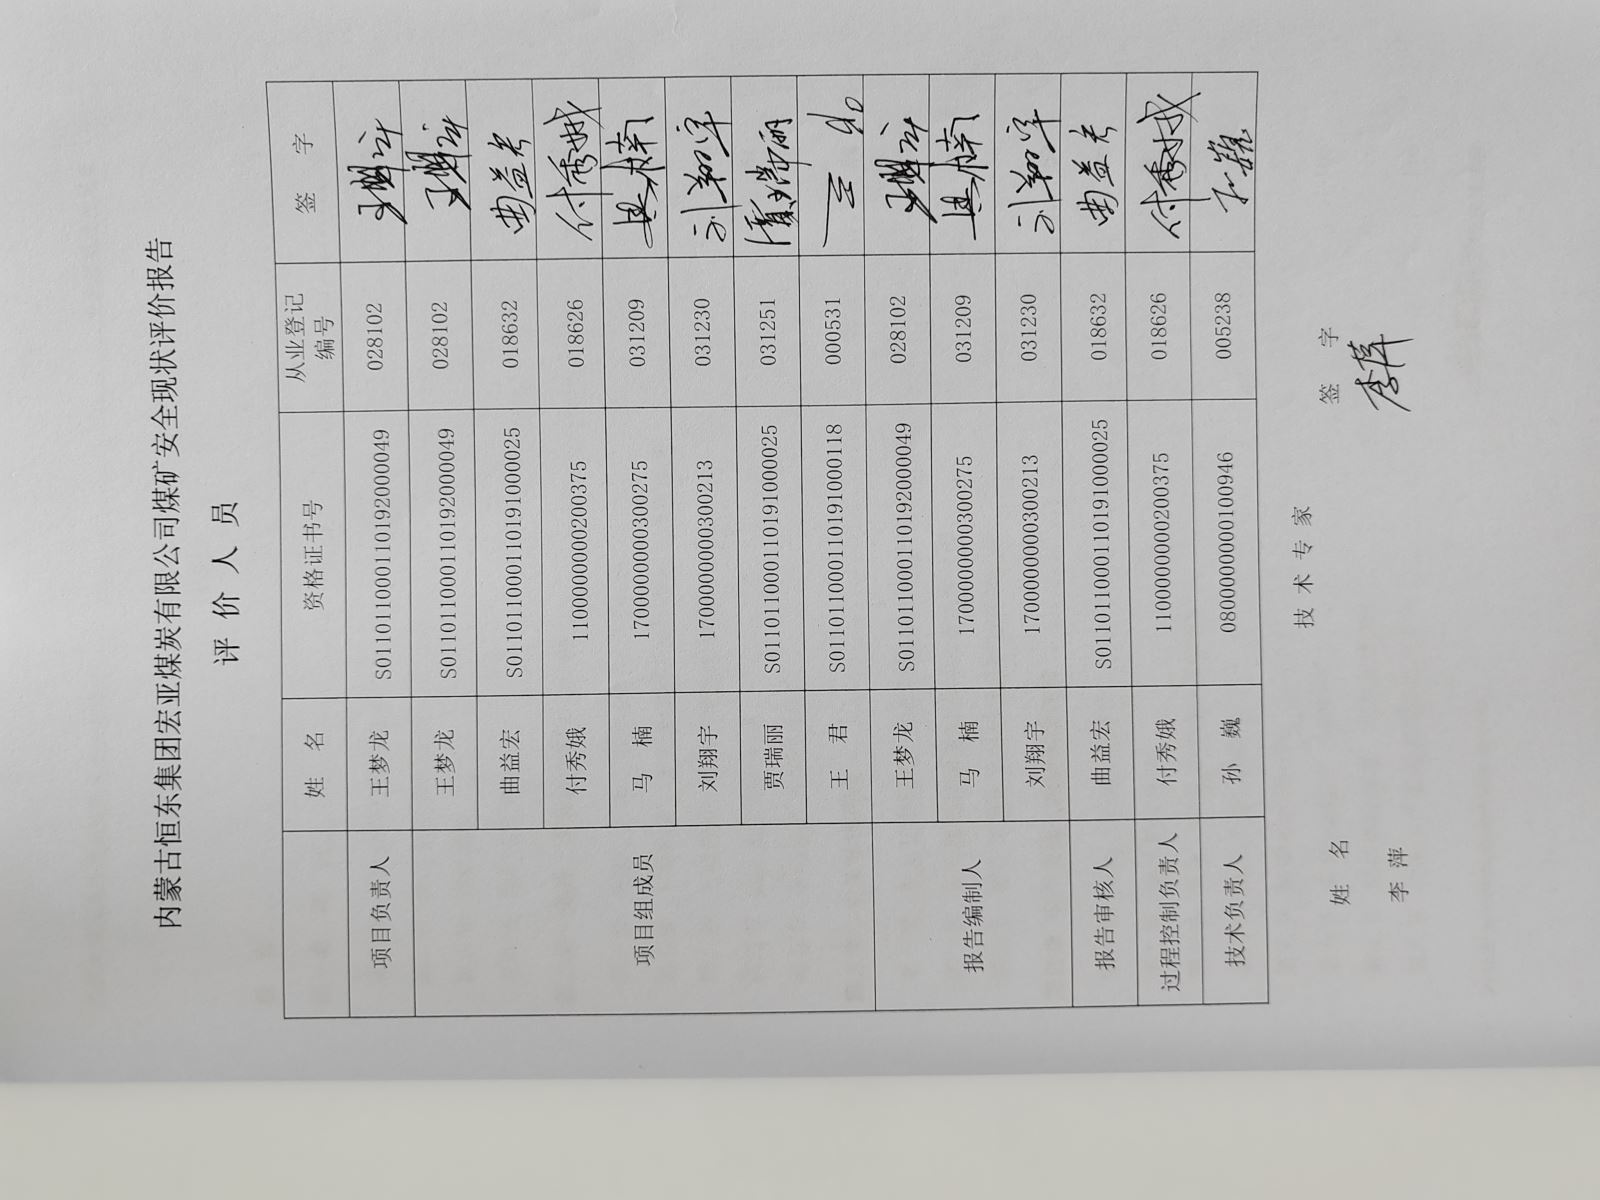 内蒙古恒东集团宏亚煤炭有限公司煤矿安全现状评价报告
评价人员
姓 名 资格证书号 从业登记编号 签 字
项目负责人 王梦龙 S011011000110192000049 028102
项目组成员 王梦龙 S011011000110192000049 028102
曲益宏 S011011000110191000025 018632 曲益宏
付秀娥 1100000000200375 018626 付秀娥
马 楠 1700000000300275 031209 马楠
刘翔宇 1700000000300213 031230 刘翔宇
贾瑞丽 S011011000110191000025 031251 贾瑞丽
王 君 S011011000110191000118 000531
报告编制人 王梦龙 S011011000110192000049 028102
马 楠 1700000000300275 031209 马楠
刘翔宇 1700000000300213 031230 刘翔宇
报告审核人 曲益宏 S011011000110191000025 018632 曲益宏
过程控制负责人 付秀娥 1100000000200375 018626 付秀娥
技术负责人 孙 巍 0800000000100946 005238 孙巍
技术专家
姓 名 签 字
李 萍 李萍